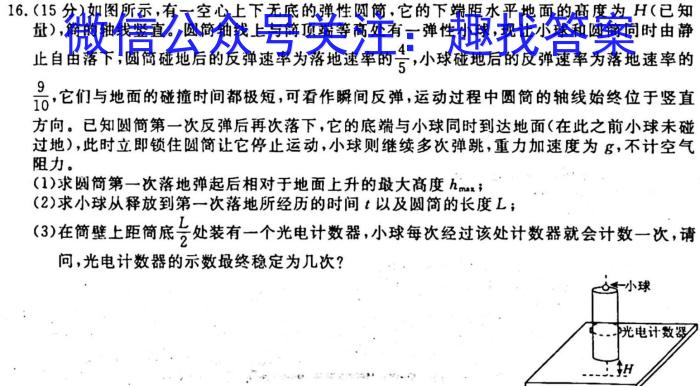 16.(15分)如图所示,有一空心上下无底的弹性圆筒,它的下端距水平地面的高度为H(已知
量),筒的轴线竖直。圆筒轴线上与筒顶端等高处有一弹性小球,现让小球和圆筒同时由静
微信公众号关注:趣找答案
止自由落下,圆筒碰地后的反弹速率为落地速率的4/5,小球碰地后的反弹速率为落地速率的
9/10,它们与地面的碰撞时间都极短,可看作瞬间反弹,运动过程中圆筒的轴线始终位于竖直
方向。已知圆筒第一次反弹后再次落下,它的底端与小球同时到达地面(在此之前小球未碰
过地),此时立即锁住圆筒让它停止运动,小球则继续多次弹跳,重力加速度为g,不计空气
阻力。
(1)求圆筒第一次落地弹起后相对于地面上升的最大高度hmax;
(2)求小球从释放到第一次落地所经历的时间t以及圆筒的长度L;
(3)在筒壁上距筒底L/2处装有一个光电计数器,小球每次经过该处计数器就会计数一次,请
问,光电计数器的示数最终稳定为几次?
小球
光电计数器
H